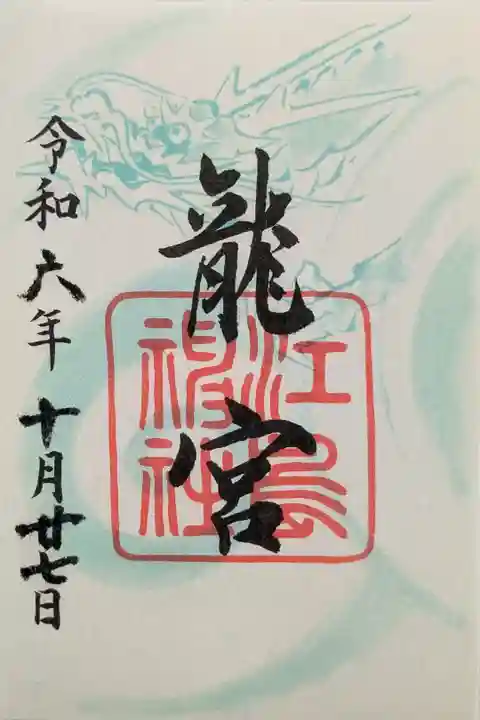 龍宮
江島神社
令和六年十月廿七日